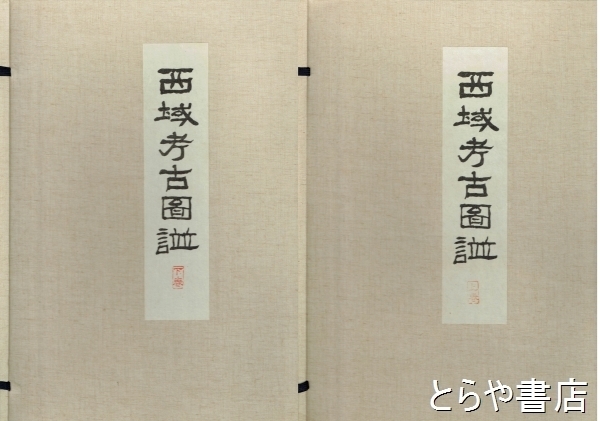 西域考古圖譜
下巻
西域考古圖譜
とらや書店